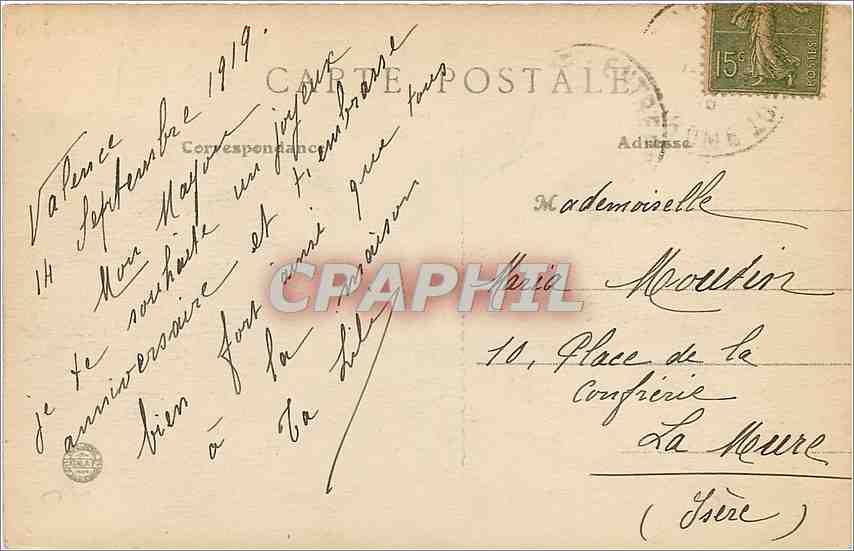 CARTE POSTALE
Correspondance
Adresse
15c
POSTES
Valence
14 Septembre 1919.
Mon Mayou
je te souhaite un joyeux
anniversaire et t'embrasse
bien fort ainsi que tous
à la maison
Ta Lili
Mademoiselle
Maria Moutin
10, Place de la
Confrérie
La Mure
(Isère)
CPAPHIL